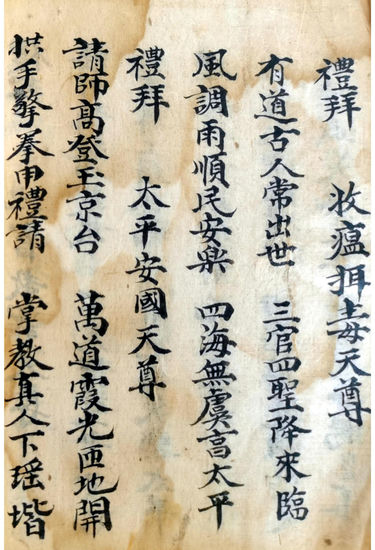 禮拜 收瘟押毒天尊
有道古人常出世 三官四聖降來臨
風調雨順民安樂 四海無虞享太平
禮拜 太平安國天尊
請師高登玉京台 萬道霞光匝地開
拱手擎拳申禮請 掌教真人下瑶堦